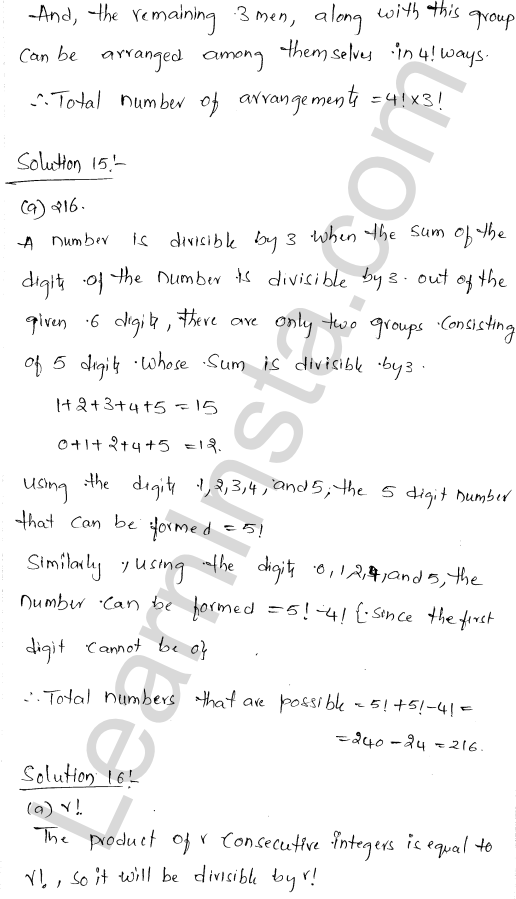 And, the remaining 3 men, along with this group
can be arranged among themselves in 4! ways.
∴ Total number of arrangements = 4! × 3!
Solution 15:-
(a) 216.
A number is divisible by 3 when the sum of the
digits of the number is divisible by 3. out of the
given 6 digits, there are only two groups consisting
of 5 digits whose sum is divisible by 3.
1+2+3+4+5 = 15
0+1+2+4+5 = 12.
using the digits 1,2,3,4, and 5, the 5 digit number
that can be formed = 5!
Similarly, using the digits 0,1,2,4, and 5, the
number can be formed = 5! - 4! {∵ since the first
digit cannot be 0}
∴ Total numbers that are possible = 5! + 5! - 4! =
= 240 - 24 = 216.
Solution 16:-
(a) r!.
The product of r consecutive integers is equal to
r!., so it will be divisible by r!
LearnInsta.com